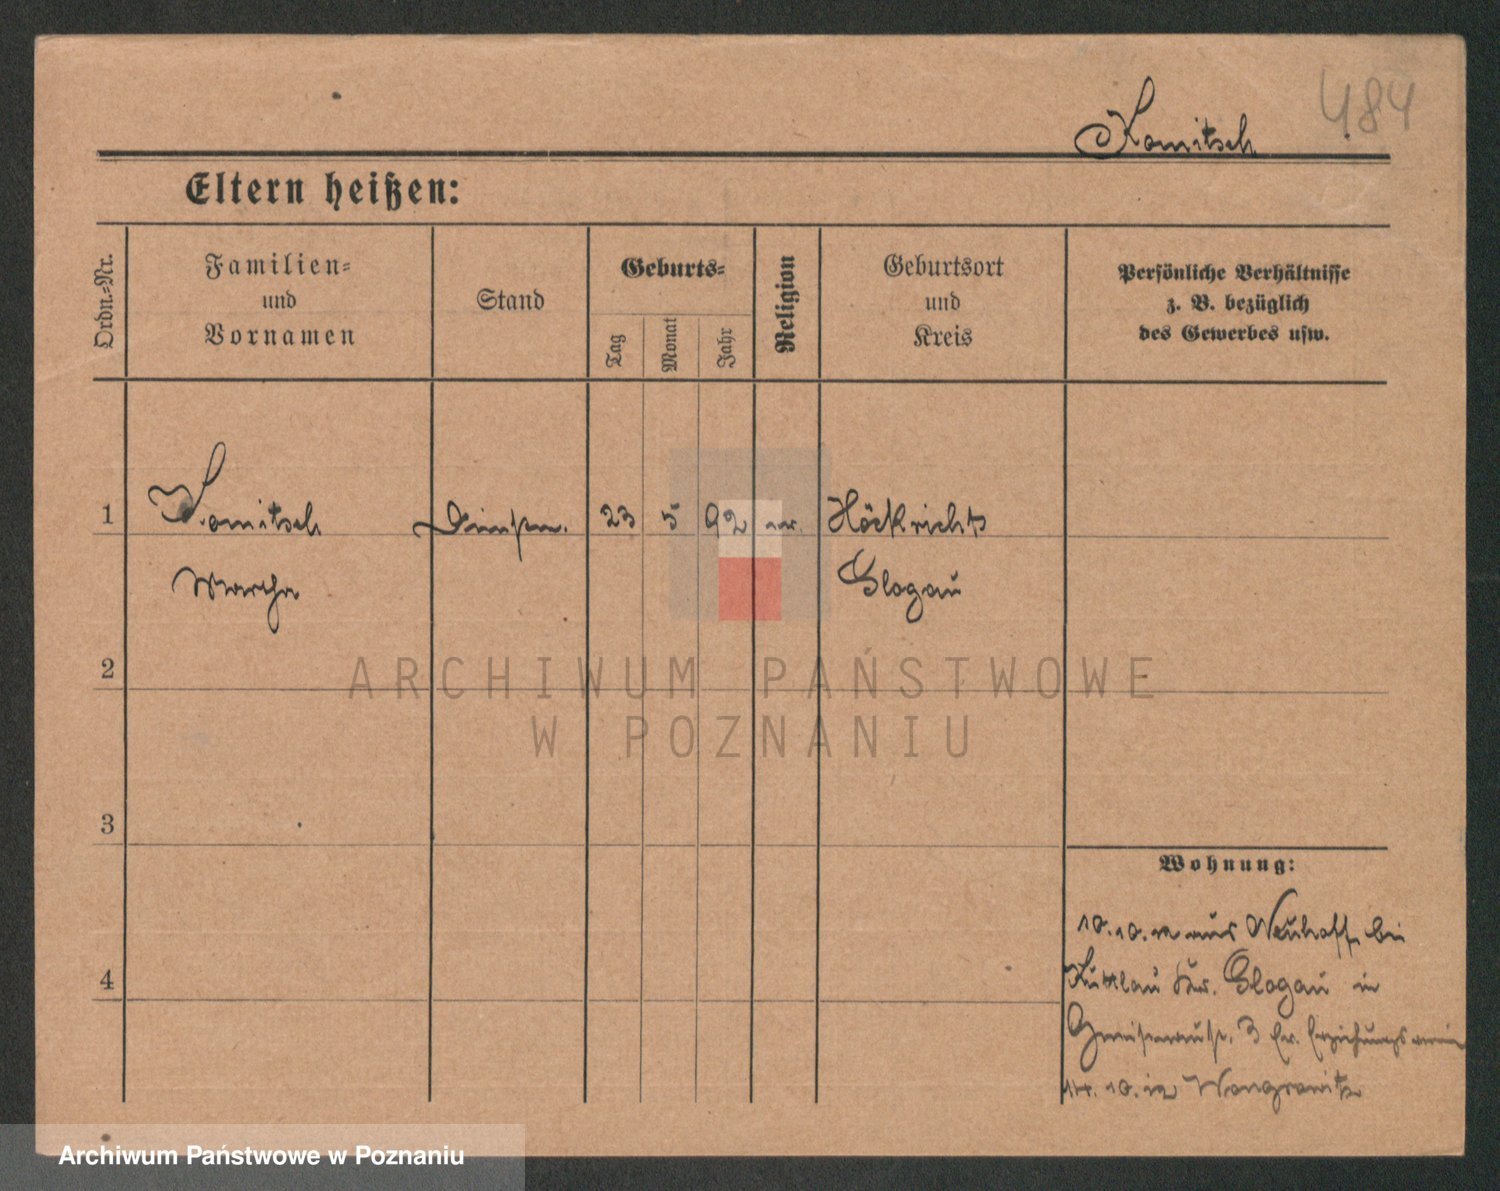 484
Komitsch
Eltern heißen:
Ordn.-Nr.
Familien-
und
Vornamen
Stand
Geburts-
Tag
Monat
Jahr
Religion
Geburtsort
und
Kreis
Persönliche Verhältnisse
z. B. bezüglich
des Gewerbes usw.
1
Komitsch
23
5
92
ev.
Höckricht
Martha
Glogau
2
ARCHIWUM PAŃSTWOWE
W POZNANIU
3
Wohnung:
10.10.12 aus Neuhoff bei
4
Kuttlau Kr. Glogau in
3 Ev. Erziehungsverein
14.10.12 Wongrowitz
Archiwum Państwowe w Poznaniu